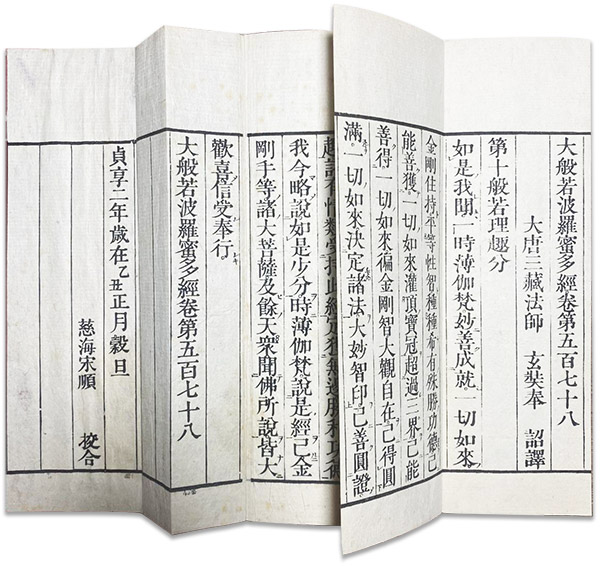 大般若波羅蜜多經卷第五百七十八
大唐三藏法師 玄奘奉 詔譯
第十般若理趣分
如是我聞一時薄伽梵妙善成就一切如來
金剛住持平等性智種種希有殊勝功德已
能善獲一切如來灌頂寶冠超過三界已能
善得一切如來徧金剛智大觀自在已得圓
滿一切如來決定諸法大妙智印已善圓證
類受持此經定獲無邊勝利功德
我今略說如是少分時薄伽梵說是經已金
剛手等諸大菩薩及餘天衆聞佛所說皆大
歡喜信受奉行
大般若波羅蜜多經卷第五百七十八
貞享二年歲在乙丑正月穀旦
慈海宋順 挍合